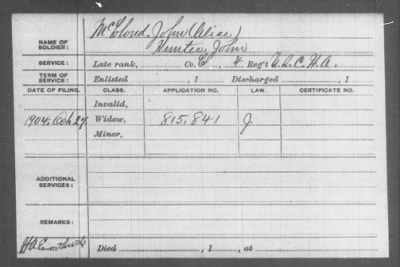 NAME OF SOLDIER: McCloud, John (Alias)
Hunter, John
SERVICE: Late rank, Co. C, 4 Reg't U.S.C.H.A.
TERM OF SERVICE: Enlisted , 1 Discharged , 1
DATE OF FILING. CLASS. APPLICATION NO. LAW. CERTIFICATE NO.
Invalid,
1904, Oct 27 Widow, 815,841 J
Minor,
ADDITIONAL SERVICES:
REMARKS:
Died , 1 , at